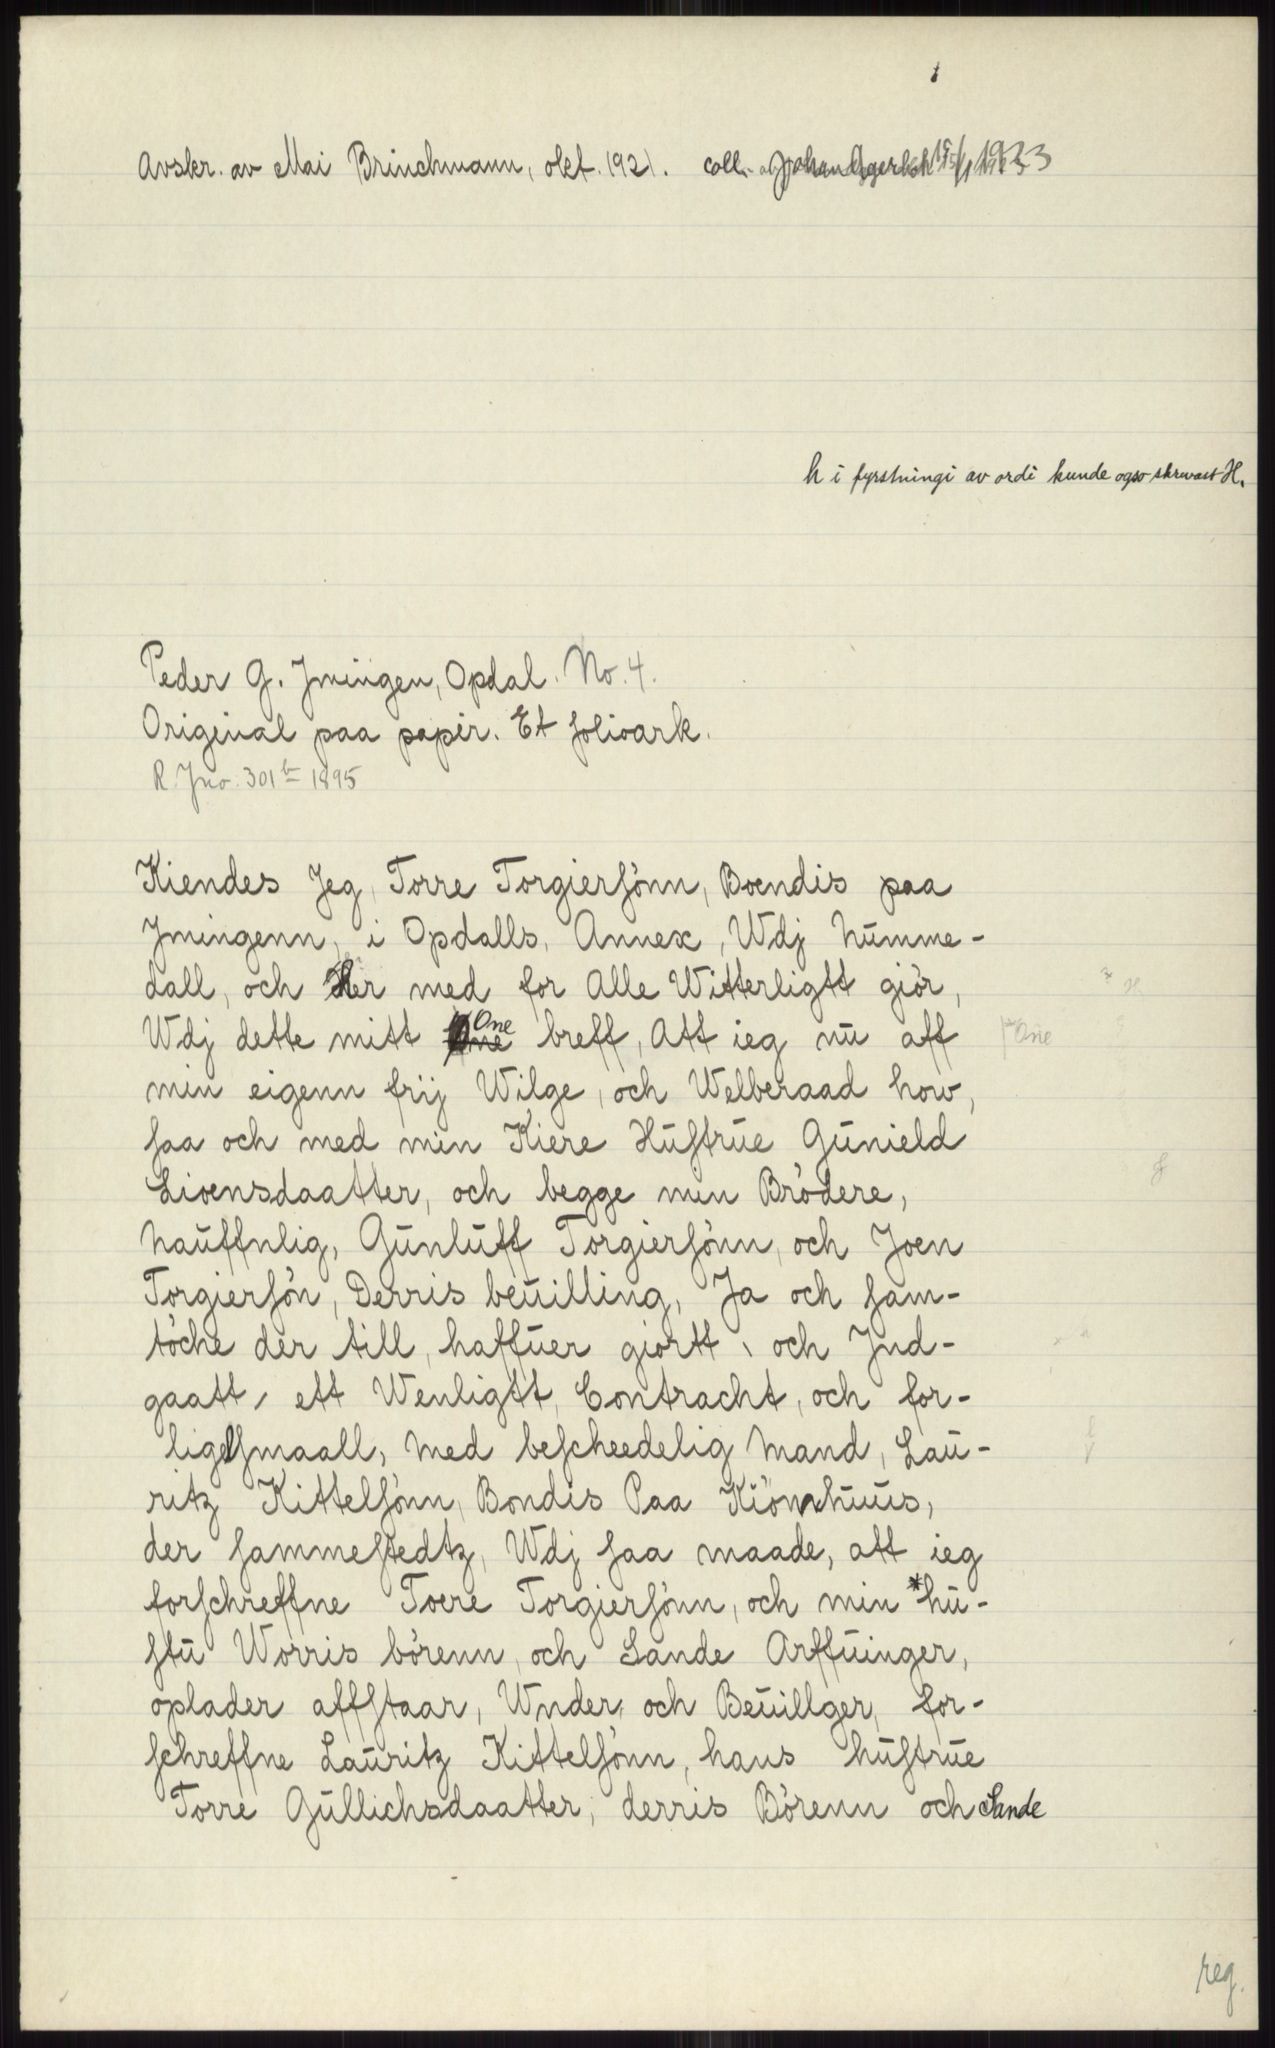 Avskr. av Mai Brinchmann, okt. 1921. coll. av Johan Agerholt 15/1 1923
h i fyrstningi av ordi kunde ogso skrivast H.
Peder G. Jmingen, Opdal. No. 4.
Original paa papir. Et folioark.
R. Jno. 301 b 1895
Kiendes Jeg, Torre Torgiersönn, Boendis paa
Jmingenn, i Opdalls, Annex, Wdj Numme-
dall, och Her med for Alle Witterligtt giör,
Wdj dette mitt One breff, Att ieg nu aff
min eigenn frij Wilge, och Welberaad how,
saa och med min Kiere Hustrue Gunield
Lioensdaatter, och begge min Brödere,
Nauffnlig, Gunluff Torgiersönn, och Joen
Torgiersön, Derris beuilling, Ja och sam-
töche der till, haffuer giortt, och Jnd-
gaatt, ett Wenligtt, Contracht, och for-
ligelsmaall, med bescheedelig Mand, Lau-
ritz Kittelsönn, Bondis Paa Kiönnhuus,
der sammestedtz, Wdj saa maade, att ieg
forschreffne Toere Torgiersönn, och min *hu-
stu Worris börenn, och Sande Arffuinger,
oplader affstaar, Wnder, och Beuillger, for-
schreffne Lauritz Kittelsönn, hans hustrue
Torre Gullichsdaatter, derris Börenn och Sande
H
One
reg.